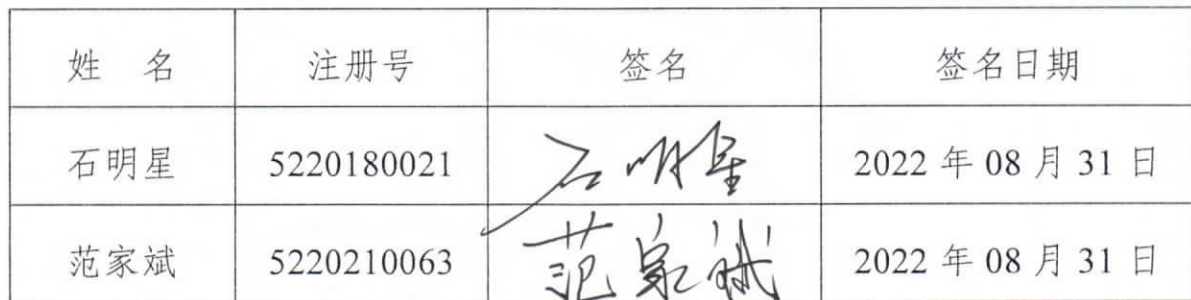 姓 名 注册号 签名 签名日期
石明星 5220180021 石明星 2022 年 08 月 31 日
范家斌 5220210063 范家斌 2022 年 08 月 31 日